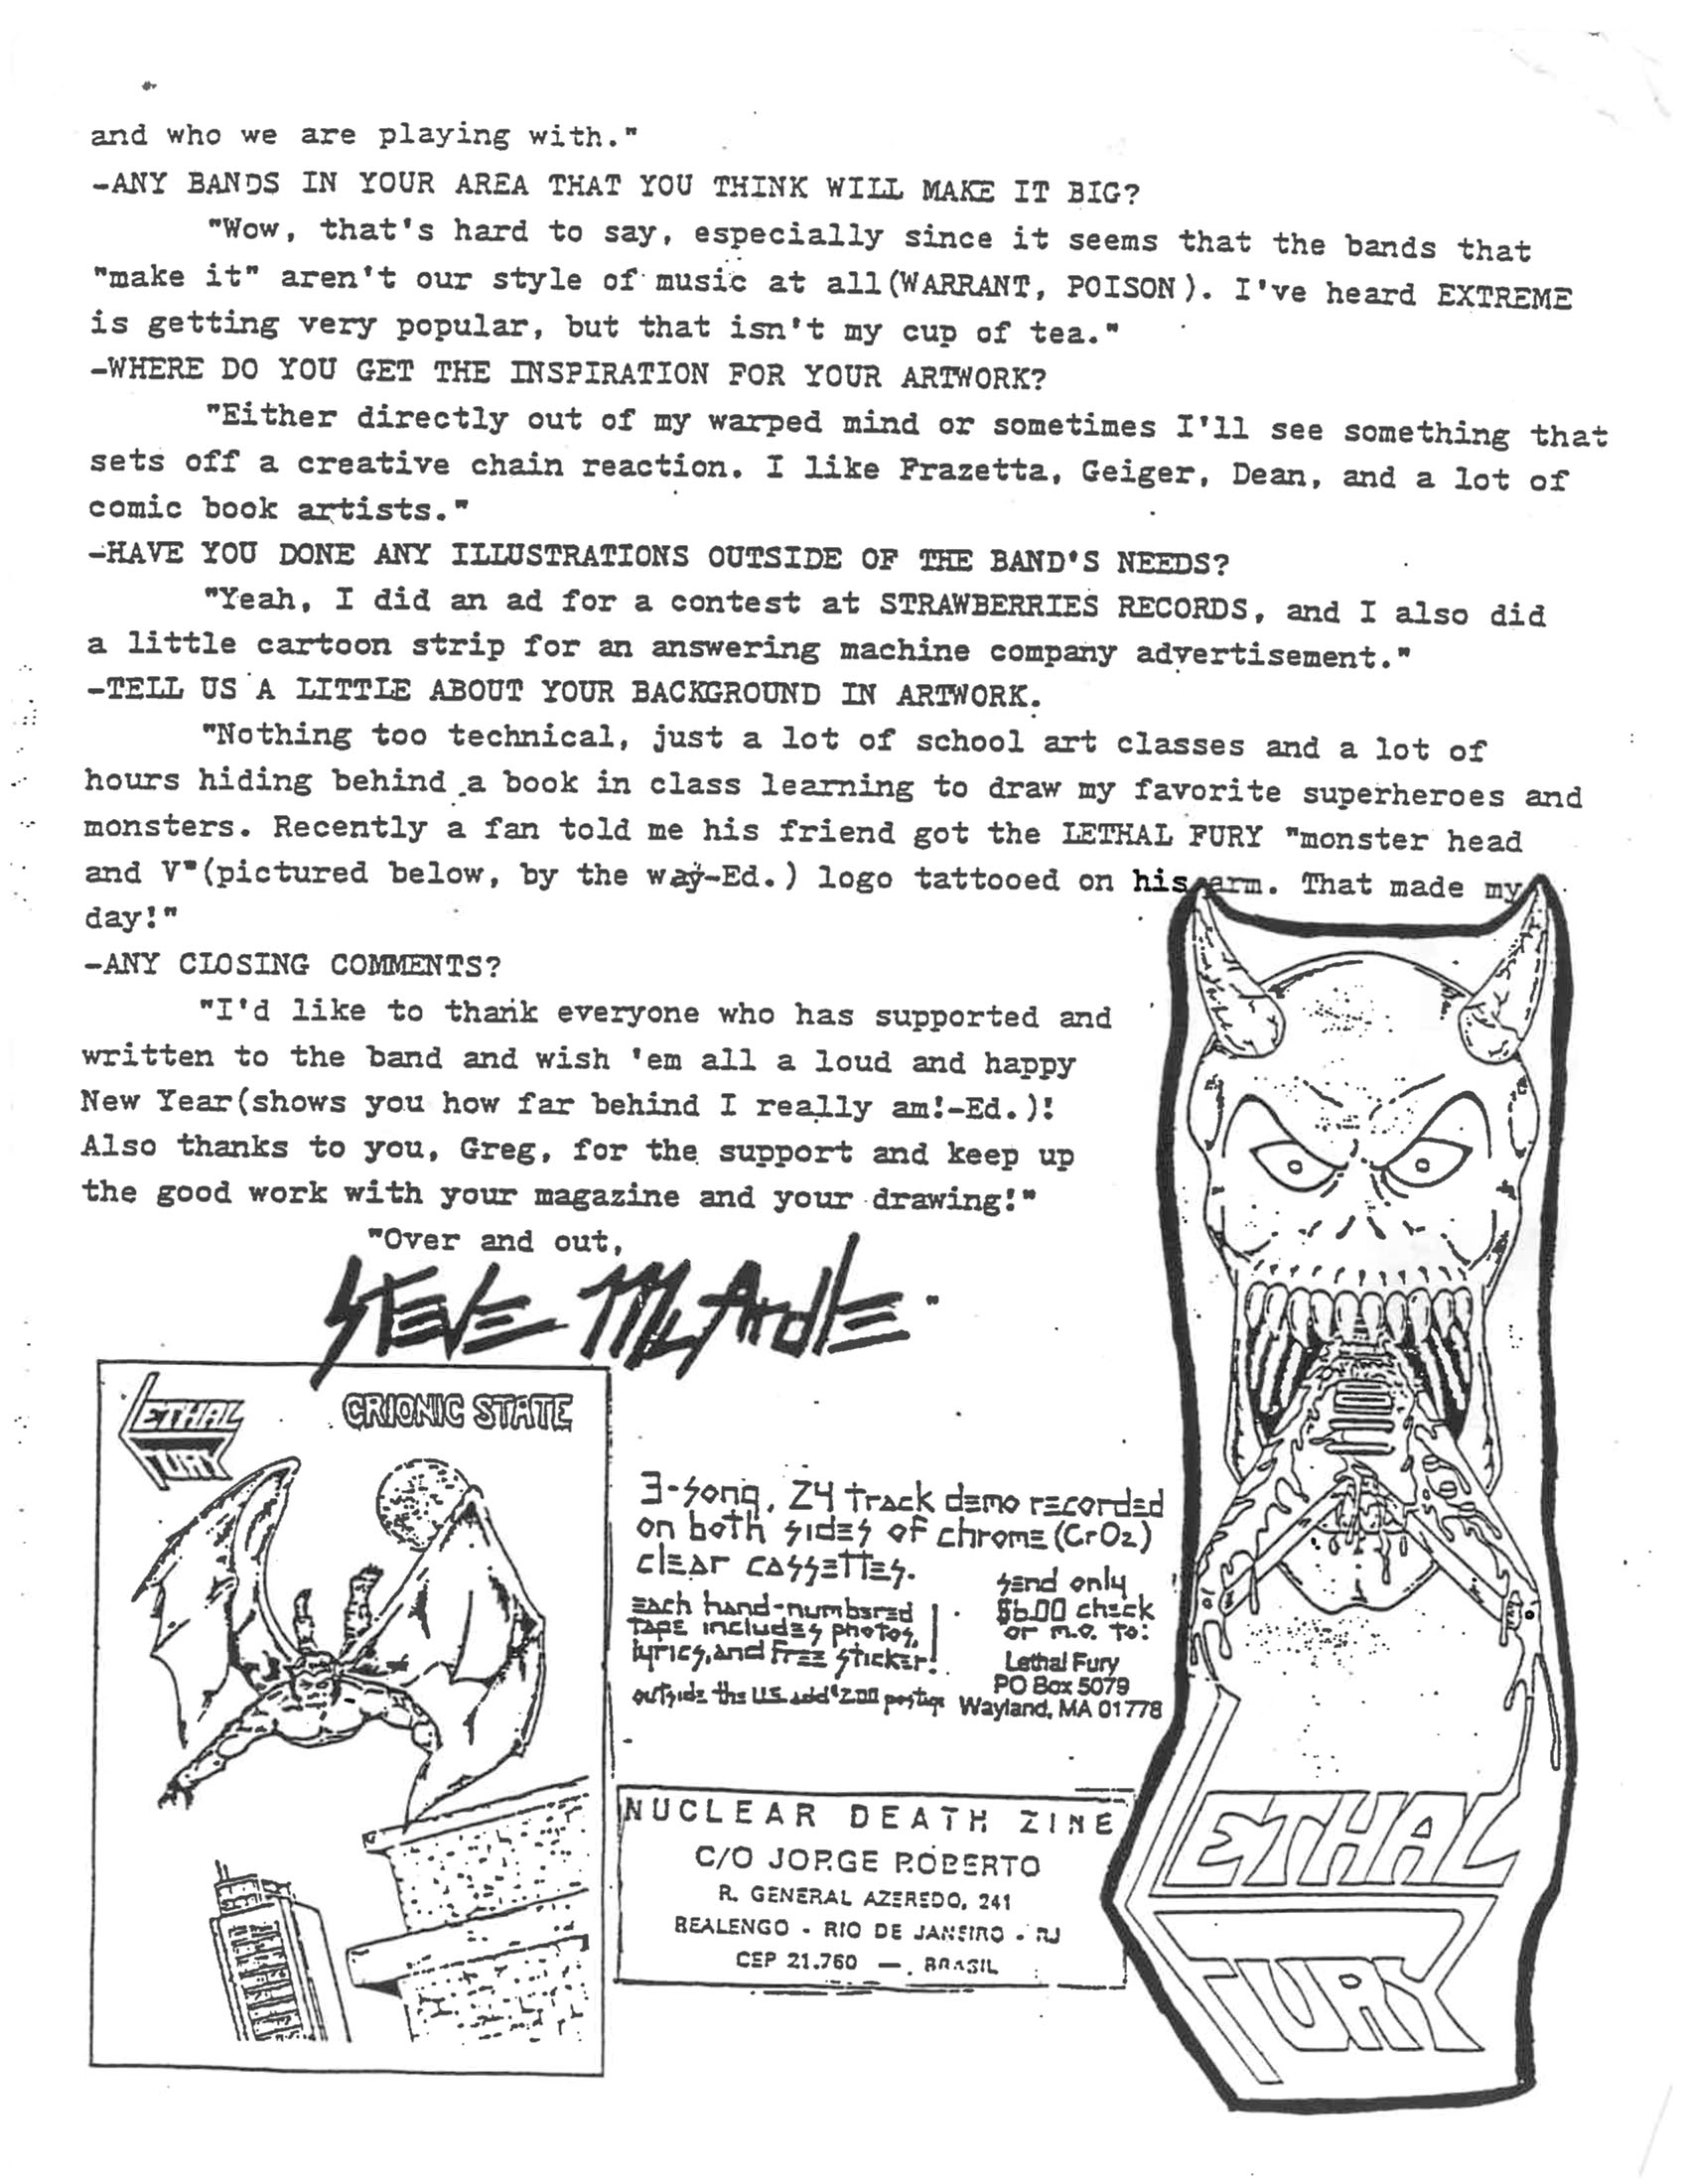 and who we are playing with."
-ANY BANDS IN YOUR AREA THAT YOU THINK WILL MAKE IT BIG?
"Wow, that's hard to say, especially since it seems that the bands that
"make it" aren't our style of music at all(WARRANT, POISON). I've heard EXTREME
is getting very popular, but that isn't my cup of tea."
-WHERE DO YOU GET THE INSPIRATION FOR YOUR ARTWORK?
"Either directly out of my warped mind or sometimes I'll see something that
sets off a creative chain reaction. I like Frazetta, Geiger, Dean, and a lot of
comic book artists."
-HAVE YOU DONE ANY ILLUSTRATIONS OUTSIDE OF THE BAND'S NEEDS?
"Yeah, I did an ad for a contest at STRAWBERRIES RECORDS, and I also did
a little cartoon strip for an answering machine company advertisement."
-TELL US A LITTLE ABOUT YOUR BACKGROUND IN ARTWORK.
"Nothing too technical, just a lot of school art classes and a lot of
hours hiding behind a book in class learning to draw my favorite superheroes and
monsters. Recently a fan told me his friend got the LETHAL FURY "monster head
and V"(pictured below, by the way-Ed.) logo tattooed on his arm. That made my
day!"
-ANY CLOSING COMMENTS?
"I'd like to thank everyone who has supported and
written to the band and wish 'em all a loud and happy
New Year(shows you how far behind I really am!-Ed.)!
Also thanks to you, Greg, for the support and keep up
the good work with your magazine and your drawing!"
"Over and out,
STEVE McArdlE"
LETHAL
FURY
CRIONIC STATE
3-song, 24 track demo recorded
on both sides of chrome (CrO2)
clear cassettes.
Each hand-numbered
tape includes photos,
lyrics, and free sticker!
outside the U.S. add $2.00 postage
send only
$6.00 check
or m.o. to:
Lethal Fury
PO Box 5079
Wayland, MA 01778
NUCLEAR DEATH ZINE
C/O JORGE ROBERTO
R. GENERAL AZEREDO, 241
REALENGO - RIO DE JANEIRO - RJ
CEP 21.760 — BRASIL
LETHAL
FURY